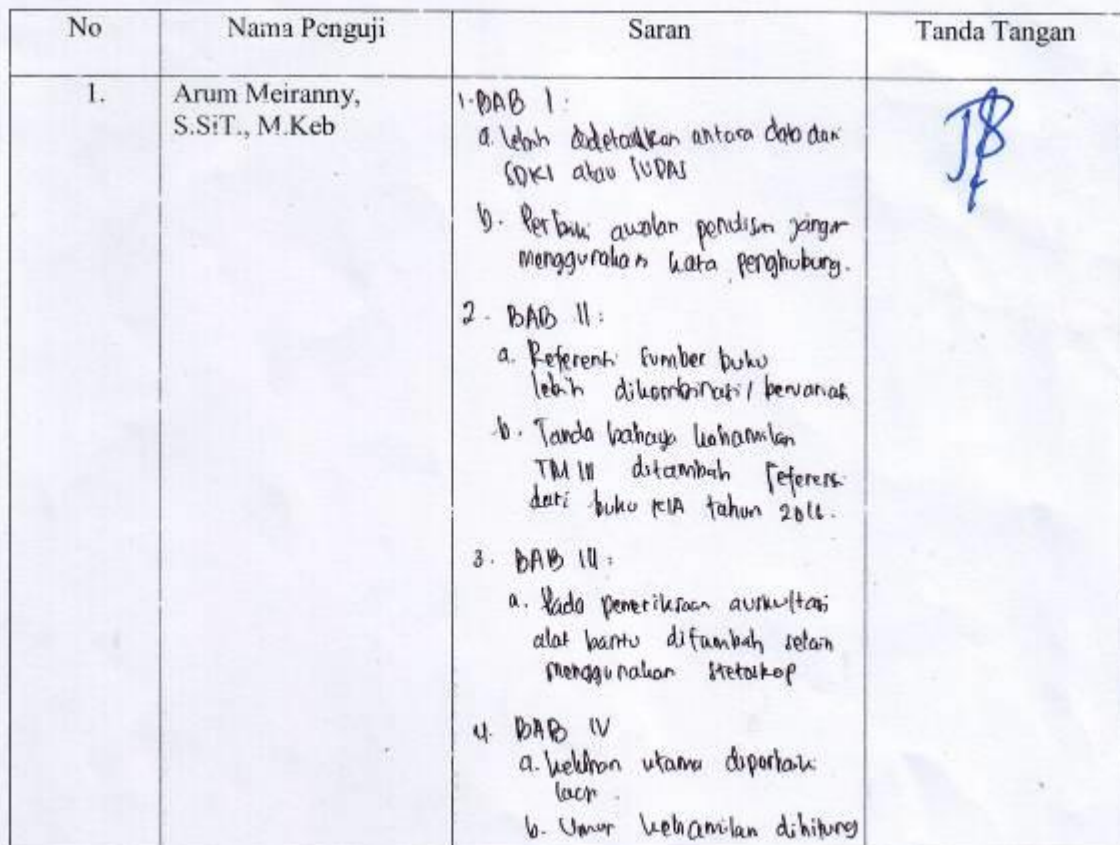 No Nama Penguji Saran Tanda Tangan
1. Arum Meiranny,
S.SiT., M.Keb
1. BAB I :
a. lebih didetailkan antara data dari
SDKI atau SUPAS
b. Perbaiki awalan penulisan jangan
menggunakan kata penghubung.
2. BAB II :
a. Referensi sumber buku
lebih dikombinasi / bervariasi
b. Tanda bahaya kehamilan
TM III ditambah referensi
dari buku KIA tahun 2016.
3. BAB III :
a. Pada pemeriksaan auskultasi
alat bantu ditambah selain
menggunakan stetoskop
4. BAB IV
a. keluhan utama diperbaiki
lagi
b. Umur kehamilan dihitung